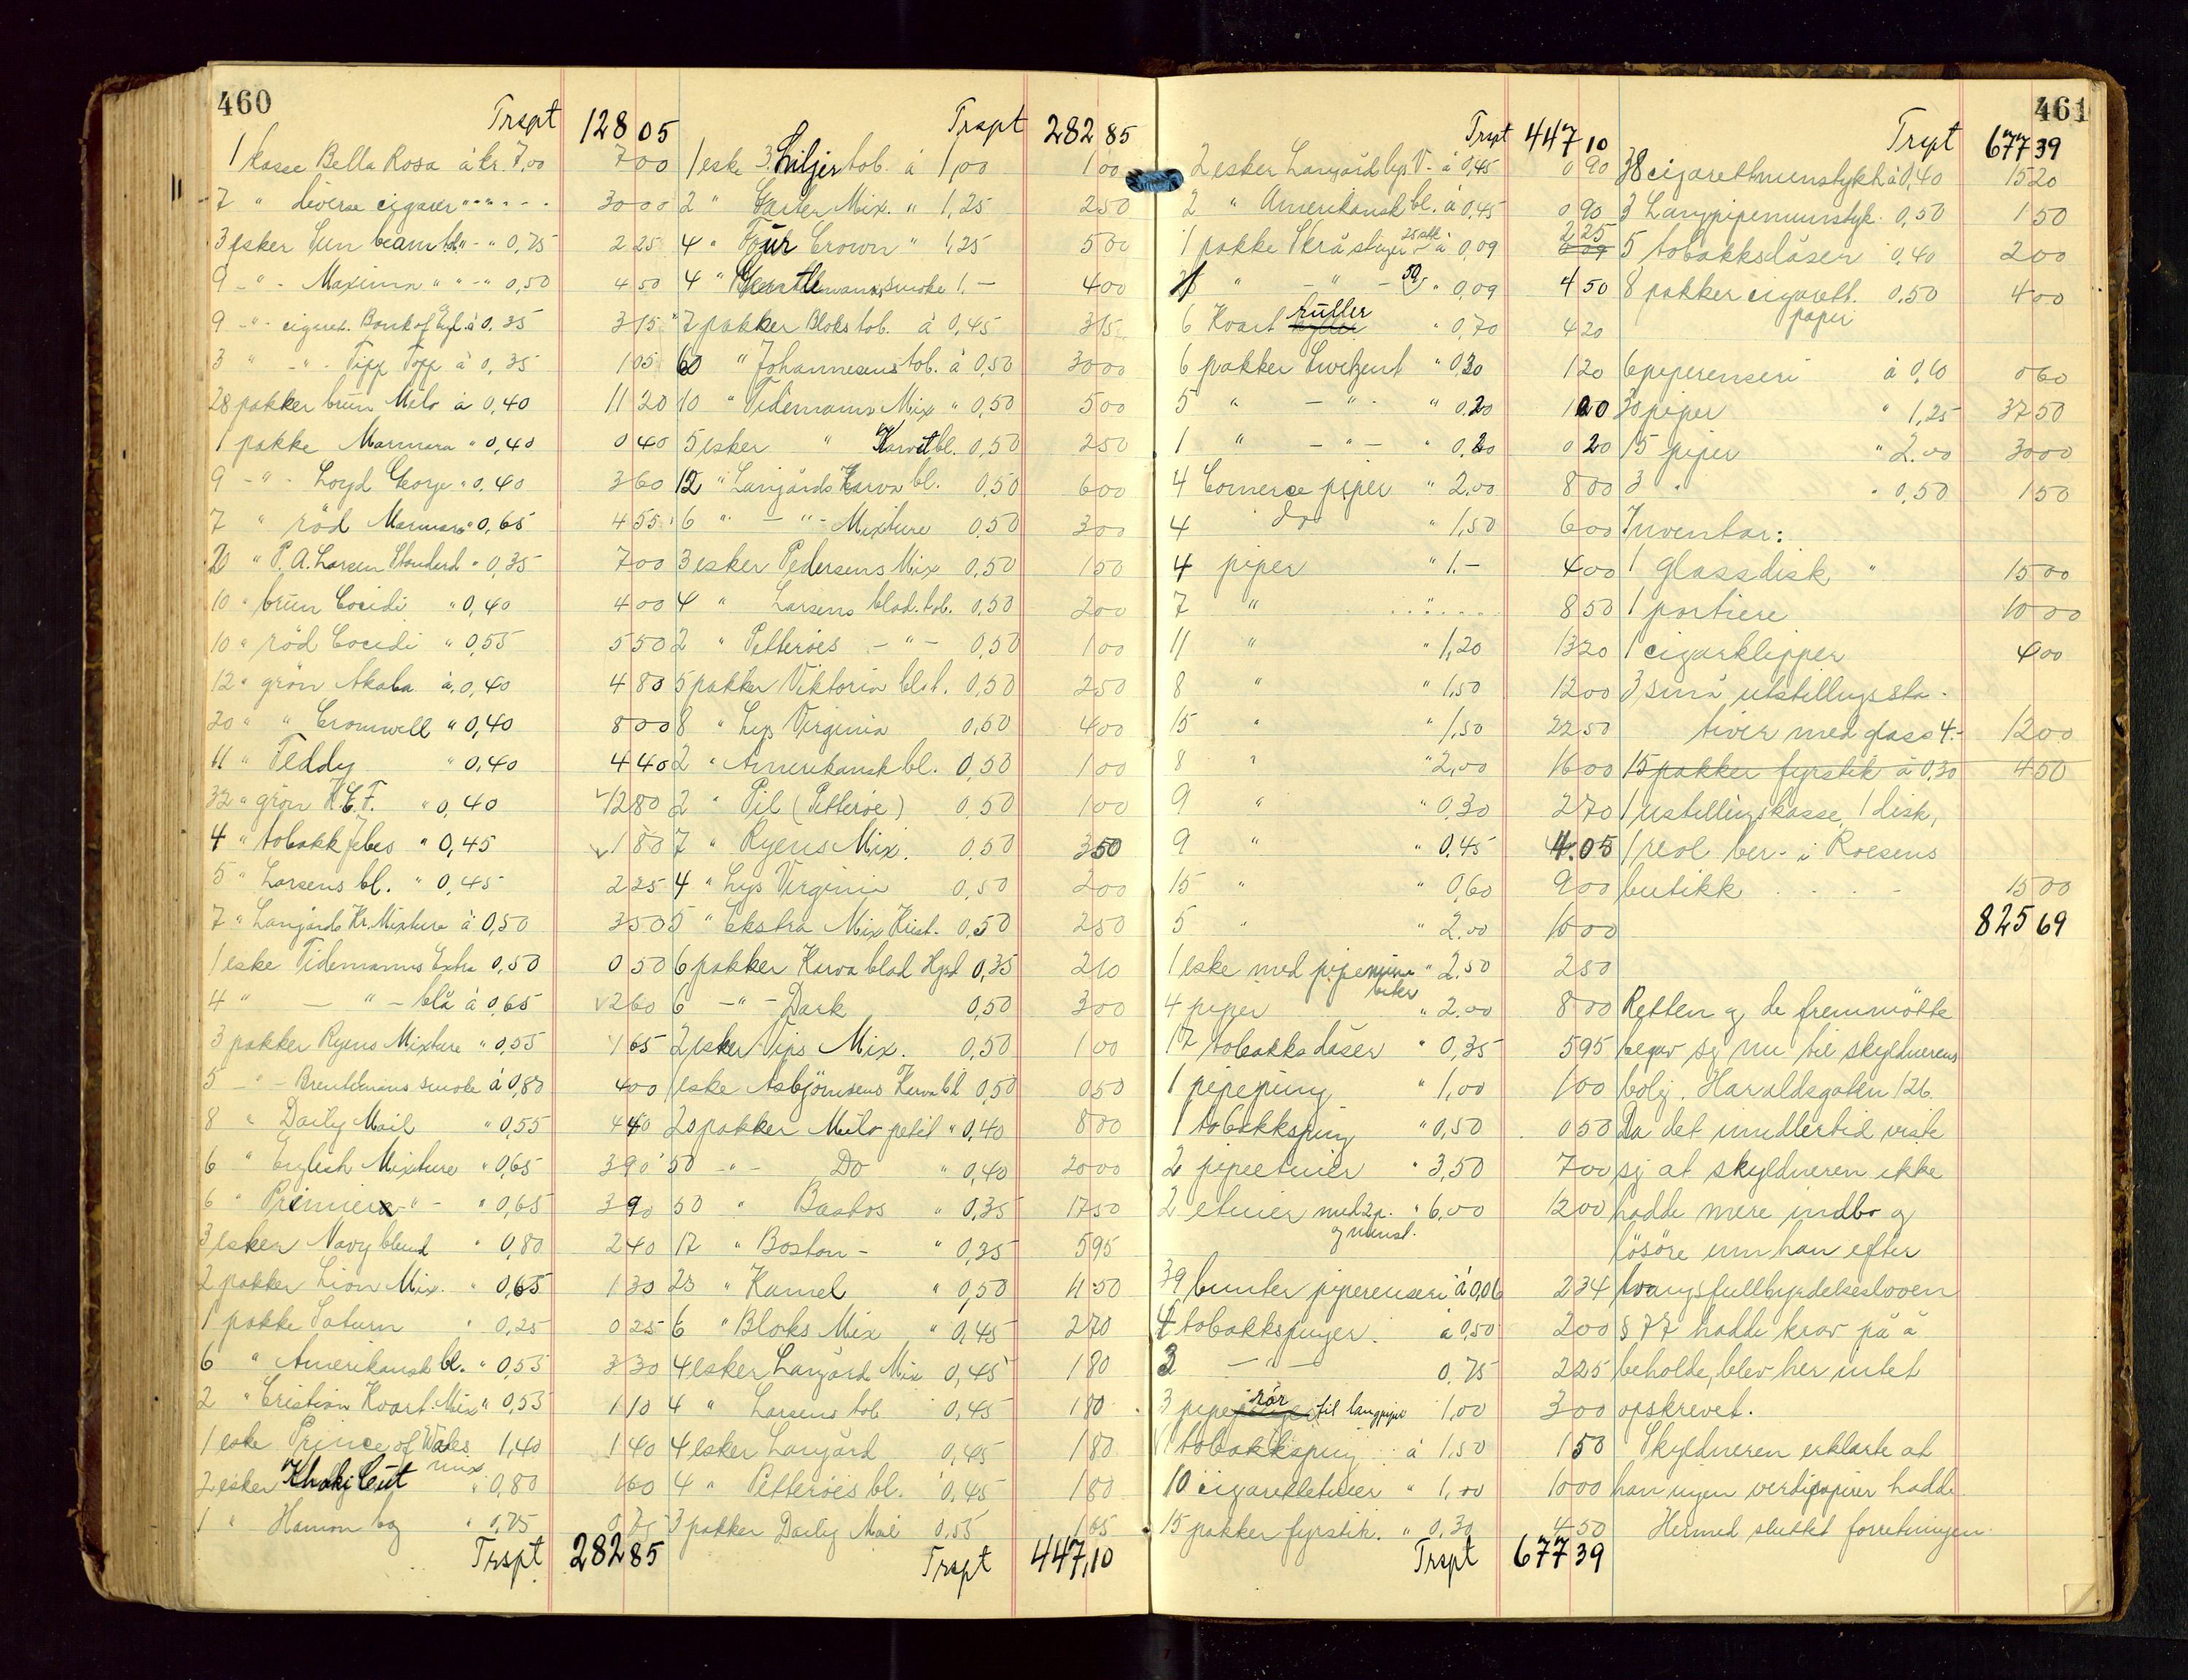 460
Trspt 128 05
1 kasse Bella Rosa á kr. 7,00 7 00
7 " diverse cigarer " - " - - - 30 00
3 esker Sun beam tob " - " 0,75 2 25
9 - " - Maxima " " - " 0,50 4 50
9 - " - cigaret. Bank of Egl. á 0,35 3 15
3 " - " - Tipp Topp á 0,35 1 05
28 pakker brun Milo á 0,40 11 20
1 pakke Marmara " 0,40 0 40
9 - " - Loyd George " 0,40 3 60
7 " röd Marmara " 0,65 4 55
20 " P. A. Larsen Standerd " 0,35 7 00
10 " brun Cocidi " 0,40 4 00
10 " röd Cocidi " 0,55 5 50
12 " grön Akaba á 0,40 4 80
20 " " Cromwell " 0,40 8 00
11 " Teddy " 0,40 4 40
32 " grön K.C.F. " 0,40 12 80
4 " tobakk " 0,45 1 80
5 " Larsens bl. " 0,45 2 25
7 " Langårds Kr. Mixture á 0,50 3 50
1 eske Tidemanns Extra 0,50 0 50
4 " — " — blå á 0,65 2 60
3 pakker Ryens Mixture " 0,55 1 65
5 - " - smoke á 0,80 4 00
8 " Daily Mail " 0,55 4 40
6 " English Mixture " 0,65 3 90
6 " Premiere - " - " 0,65 3 90
3 esker Navy blend " 0,80 2 40
2 pakker Lion Mix. " 0,65 1 30
1 pakke Saturn " 0,25 0 25
6 " Amerikansk bl. " 0,55 3 30
2 " Cristian Kvart Mix " 0,55 1 10
1 eske Prince of Wales 1,40 1 40
2 esker Khaki Cut mix " 0,80 1 60
1 " " 0,75 0 75
Trspt 282 85
Trspt 282 85
1 eske 3 Liljer tob. á 1,00 1 00
2 " Garter Mix. " 1,25 2 50
4 " Four Crown " 1,25 5 00
4 " Gentlemans smoke 1.— 4 00
7 pakker Bloks tob. á 0,45 3 15
60 " Johannesens tob. á 0,50 30 00
10 " Tidemanns Mix " 0,50 5 00
5 esker " Karvet bl. 0,50 2 50
12 " Langårds Karva bl. 0,50 6 00
6 " — " - Mixture 0,50 3 00
3 esker Pedersens Mix 0,50 1 50
4 " Larsens blad. tob. 0,50 2 00
2 " Petteröes - " - 0,50 1 00
5 pakker Viktoria bl.t. 0,50 2 50
8 " Lys Virginia 0,50 4 00
2 " Amerikansk bl. 0,50 1 00
2 " Pil (Petteröe) 0,50 1 00
7 " Ryens Mix. 0,50 3 50
4 " Lys Virginia 0,50 2 00
5 " Ekstra Mix Krist. 0,50 2 50
6 pakker Karva blad 0,35 2 10
6 - " - Dark 0,50 3 00
2 esker Vips Mix. 0,50 1 00
1 eske Asbjörnsens Karva bl 0,50 0 50
20 pakker Milo petit " 0,40 8 00
50 - " - Do " 0,40 20 00
50 " Bastos " 0,35 17 50
17 " Boston - " 0,35 5 95
23 " Kamel " 0,50 11 50
6 " Bloks Mix " 0,45 2 70
4 esker Langård Mix 0,45 1 80
4 " Larsens tob 0,45 1 80
4 esker Langård 0,45 1 80
4 " Petteröes bl. 0,45 1 80
3 pakker Daily Mail 0,55 1 65
Trspt 447,10
461
Trspt 447 10
2 esker Langård lys V. - á 0,45 0 90
2 " Amerikansk bl. á 0,45 0 90
1 pakke Skrå stuger 25 stk á 0,09 2 25
1 " - " - 50 " 0,09 4 50
6 Kvart ruller " 0,70 4 20
6 pakker " 0,20 1 20
5 " - " - " 0,20 1 00
1 " - " - " 0,20 0 20
4 Comerce piper " 2,00 8 00
4 do " 1,50 6 00
4 piper " 1.— 4 00
7 " . . " . . . . 8 50
11 " " 1,20 13 20
8 " " 1,50 12 00
15 " " 1,50 22 50
8 " " 2,00 16 00
9 " " 0,30 2 70
9 " " 0,45 4.05
15 " " 0,60 9 00
5 " " 2,00 10 00
1 eske med " 2,50 2 50
4 piper " 2,00 8 00
17 tobakksdåser " 0,35 5 95
1 pipepung " 1,00 1 00
1 tobakkspung " 0,50 0 50
2 pipeetuier " 3,50 7 00
2 etuier med 2 p. og munst. " 6,00 12 00
39 bunter piperenseri á 0,06 2 34
4 tobakkspunger á 0,50 2 00
3 — " — 0,75 2 25
3 pipe rör til langpipe 1,00 3 00
1 tobakkspung á 1,50 1 50
10 cigarettetuier " 1,00 10 00
15 pakker fyrstik. " 0,30 4 50
Trspt 677 39
Trspt 677 39
38 cigarettmunstykk á 0,40 15 20
3 Langpipemunstyk. 0,50 1 50
5 tobakksdåser 0,40 2 00
8 pakker cigarett. paper 0,50 4 00
6 piperenseri á 0,10 0 60
30 piper " 1,25 37 50
15 piper " 2.00 30 00
3 " " 0,50 1 50
Inventar:
1 glassdisk " 15 00
1 portiere 10 00
1 cigarklipper 4 00
3 små utstillingssta-
tiver med glass 4.- 12 00
15 pakker fyrstik á 0,30 4 50
1 ustillingskasse, 1 disk,
1 reol ber. i Roesens
butikk . . . - 15 00
825 69
Retten og de fremmötte
begav sig nu til skyldnerens
bolig. Haraldsgaten 126.
Da det imidlertid viste
sig at skyldneren ikke
hadde mere indbo og
lösöre enn han efter
tvangsfullbyrdelsesloven
§ 77 hadde krav på å
beholde, blev her intet
opskrevet.
Skyldneren erklærte at
han ingen verdipapirer hadde.
Hermed sluttet forretningen.